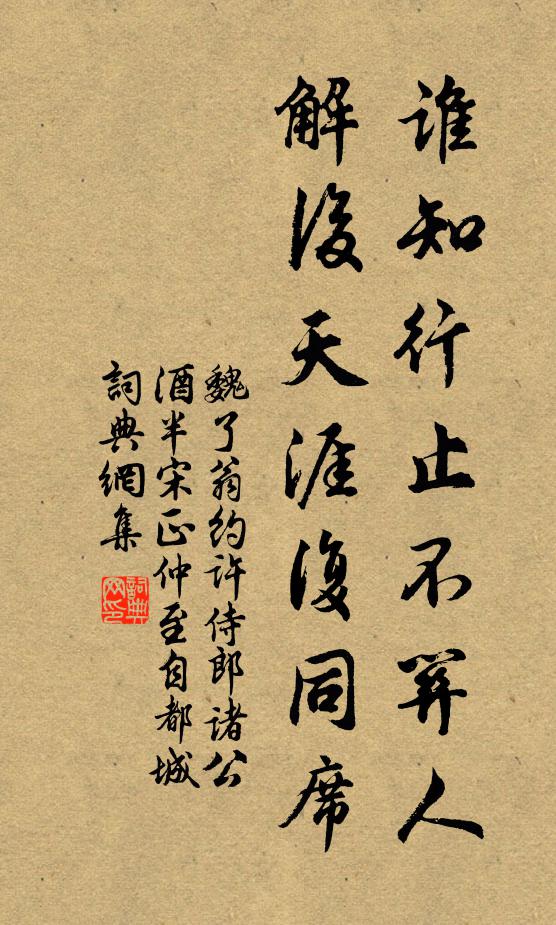 誰知行止不關人
解後天涯復同席
魏了翁約許侍郎諸公
酒半宋正仲至自都城
詞典網集
詞典網印